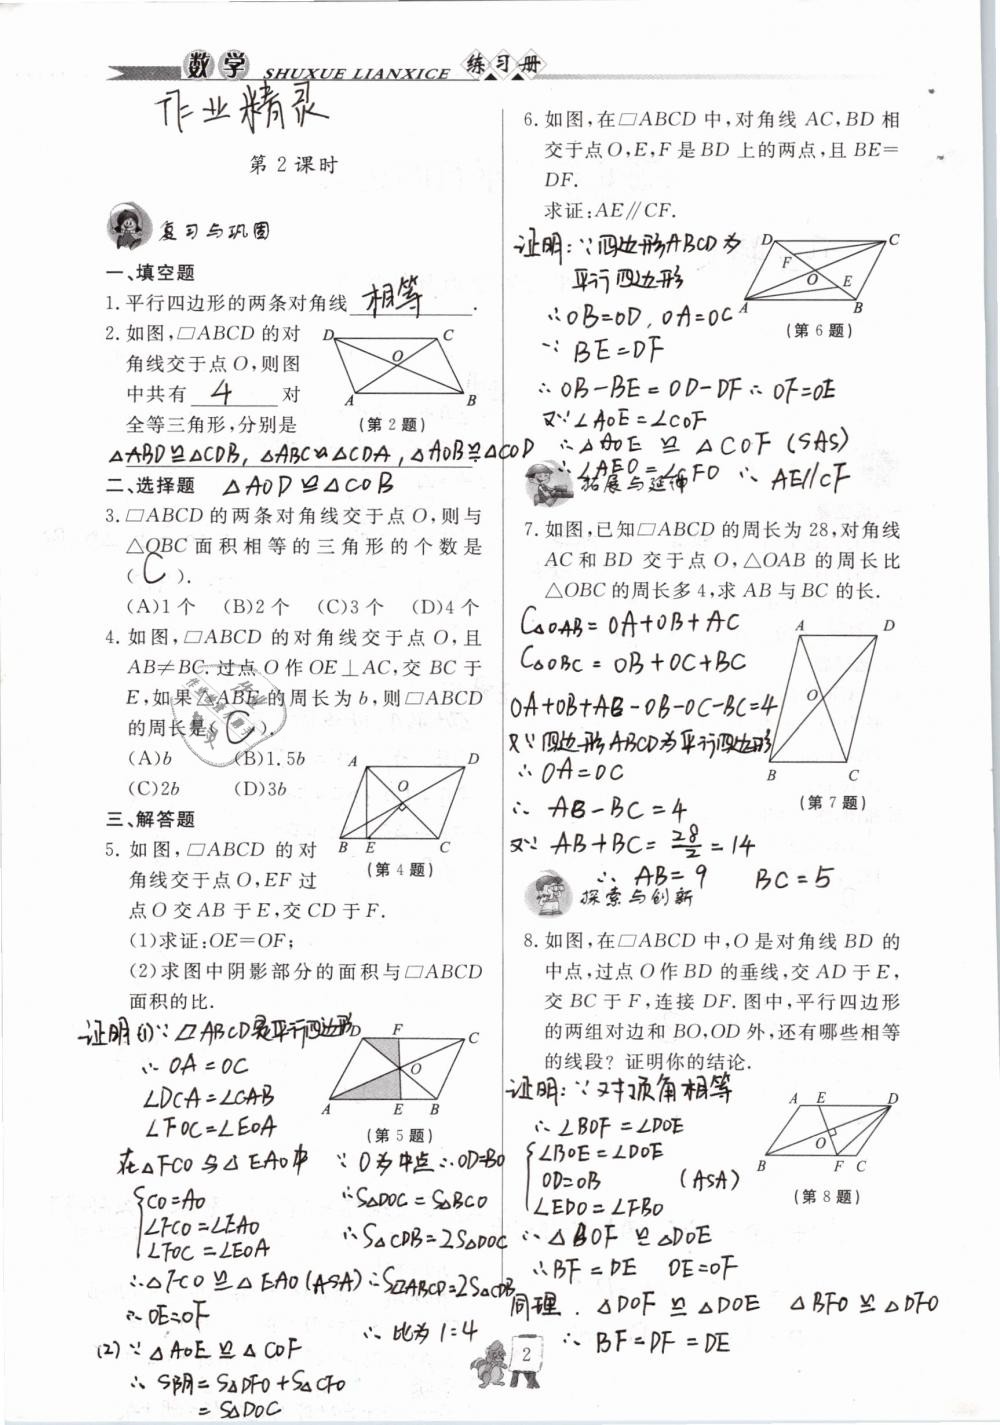 数学 SHUXUE LIANXICE 练习册
作业精灵
第2课时
复习与巩固
一、填空题
1.平行四边形的两条对角线 相等 .
2.如图,▱ABCD 的对
角线交于点O,则图
中共有 4 对
全等三角形,分别是
△ABD≌△CDB, △ABC≌△CDA, △AOB≌△COD
△AOD≌△COB
D C O A B
(第2题)
二、选择题
3.▱ABCD 的两条对角线交于点 O,则与
△OBC 面积相等的三角形的个数是
( C ).
(A)1个 (B)2个 (C)3个 (D)4个
4.如图,▱ABCD 的对角线交于点 O,且
AB≠BC.过点 O 作 OE⊥AC,交 BC 于
E,如果△ABE 的周长为 b,则▱ABCD
的周长是( C ).
(A)b (B)1.5b
(C)2b (D)3b
A D O B E C
(第4题)
三、解答题
5.如图,▱ABCD 的对
角线交于点O,EF 过
点O交AB 于E,交CD 于F.
(1)求证:OE=OF;
(2)求图中阴影部分的面积与▱ABCD
面积的比.
证明(1)∵▱ABCD是平行四边形
∴OA=OC
∠DCA=∠CAB
∠FOC=∠EOA
在△FCO与△EAO中
CO=AO
∠FCO=∠EAO
∠FOC=∠EOA
∴△FCO≌△EAO(ASA)
∴OE=OF
(2)∵△AOE≌△COF
∴S阴=S△DFO+S△CFO
=S△DOC
D F C O A E B
(第5题)
∵O为中点∴OD=BO
∴S△DOC=S△BCO
∴S△CDB=2S△DOC
∴S▱ABCD=2S△CDB
∴比为1:4
6.如图,在▱ABCD 中,对角线 AC,BD 相
交于点O,E,F 是BD 上的两点,且BE=
DF.
求证:AE∥CF.
证明:∵四边形ABCD为
平行四边形
∴OB=OD,OA=OC
∵BE=DF
∴OB-BE=OD-DF∴OF=OE
又∵∠AOE=∠COF
∴△AOE≌△COF(SAS)
∴∠AEO=∠CFO ∴AE//CF
D C F O E A B
(第6题)
拓展与延伸
7.如图,已知▱ABCD 的周长为28,对角线
AC 和 BD 交于点 O,△OAB 的周长比
△OBC 的周长多4,求 AB 与BC 的长.
C△OAB=OA+OB+AC
C△OBC=OB+OC+BC
OA+OB+AB-OB-OC-BC=4
又∵四边形ABCD为平行四边形
∴OA=OC
∴AB-BC=4
又∵AB+BC=28/2=14
∴AB=9 BC=5
A D O B C
(第7题)
探索与创新
8.如图,在▱ABCD 中,O 是对角线 BD 的
中点,过点O作BD 的垂线,交 AD 于E,
交 BC 于 F,连接 DF.图中,平行四边形
的两组对边和 BO,OD 外,还有哪些相等
的线段? 证明你的结论.
证明:∵对顶角相等
∴∠BOF=∠DOE
∠BOE=∠DOE
OD=OB (ASA)
∠EDO=∠FBO
∴△BOF≌△DOE
∴BF=DE OE=OF
同理. △DOF≌△DOE △BFO≌△DFO
∴BF=DF=DE
A E D O B F C
(第8题)
2